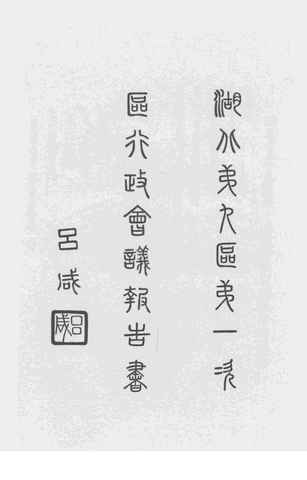 湖北弟九區弟一次
區行政會議報告書
呂咸
呂咸